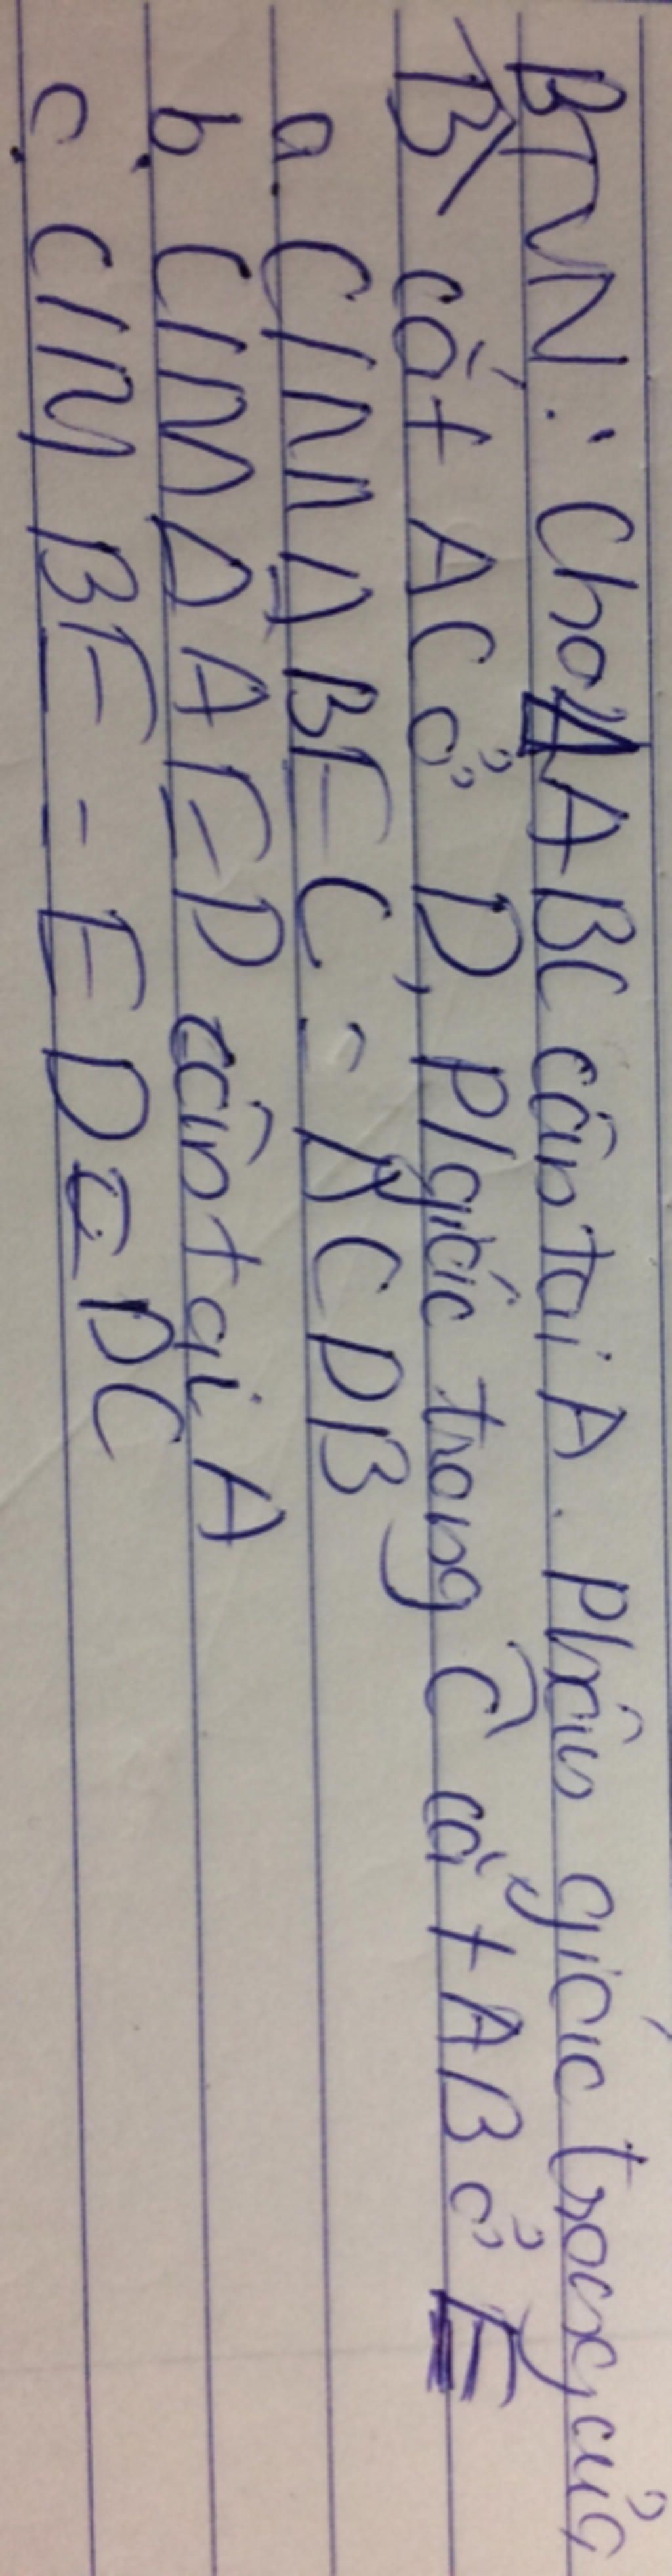 BTVN: Cho ΔABC cân tại A. Phân giác trong của
B̂ cắt AC ở D, P/giác trong Ĉ cắt AB ở E
a. C/m ΔBEC = ΔCDB
b. C/m ΔAED cân tại A
c. C/M BE = ED = DC